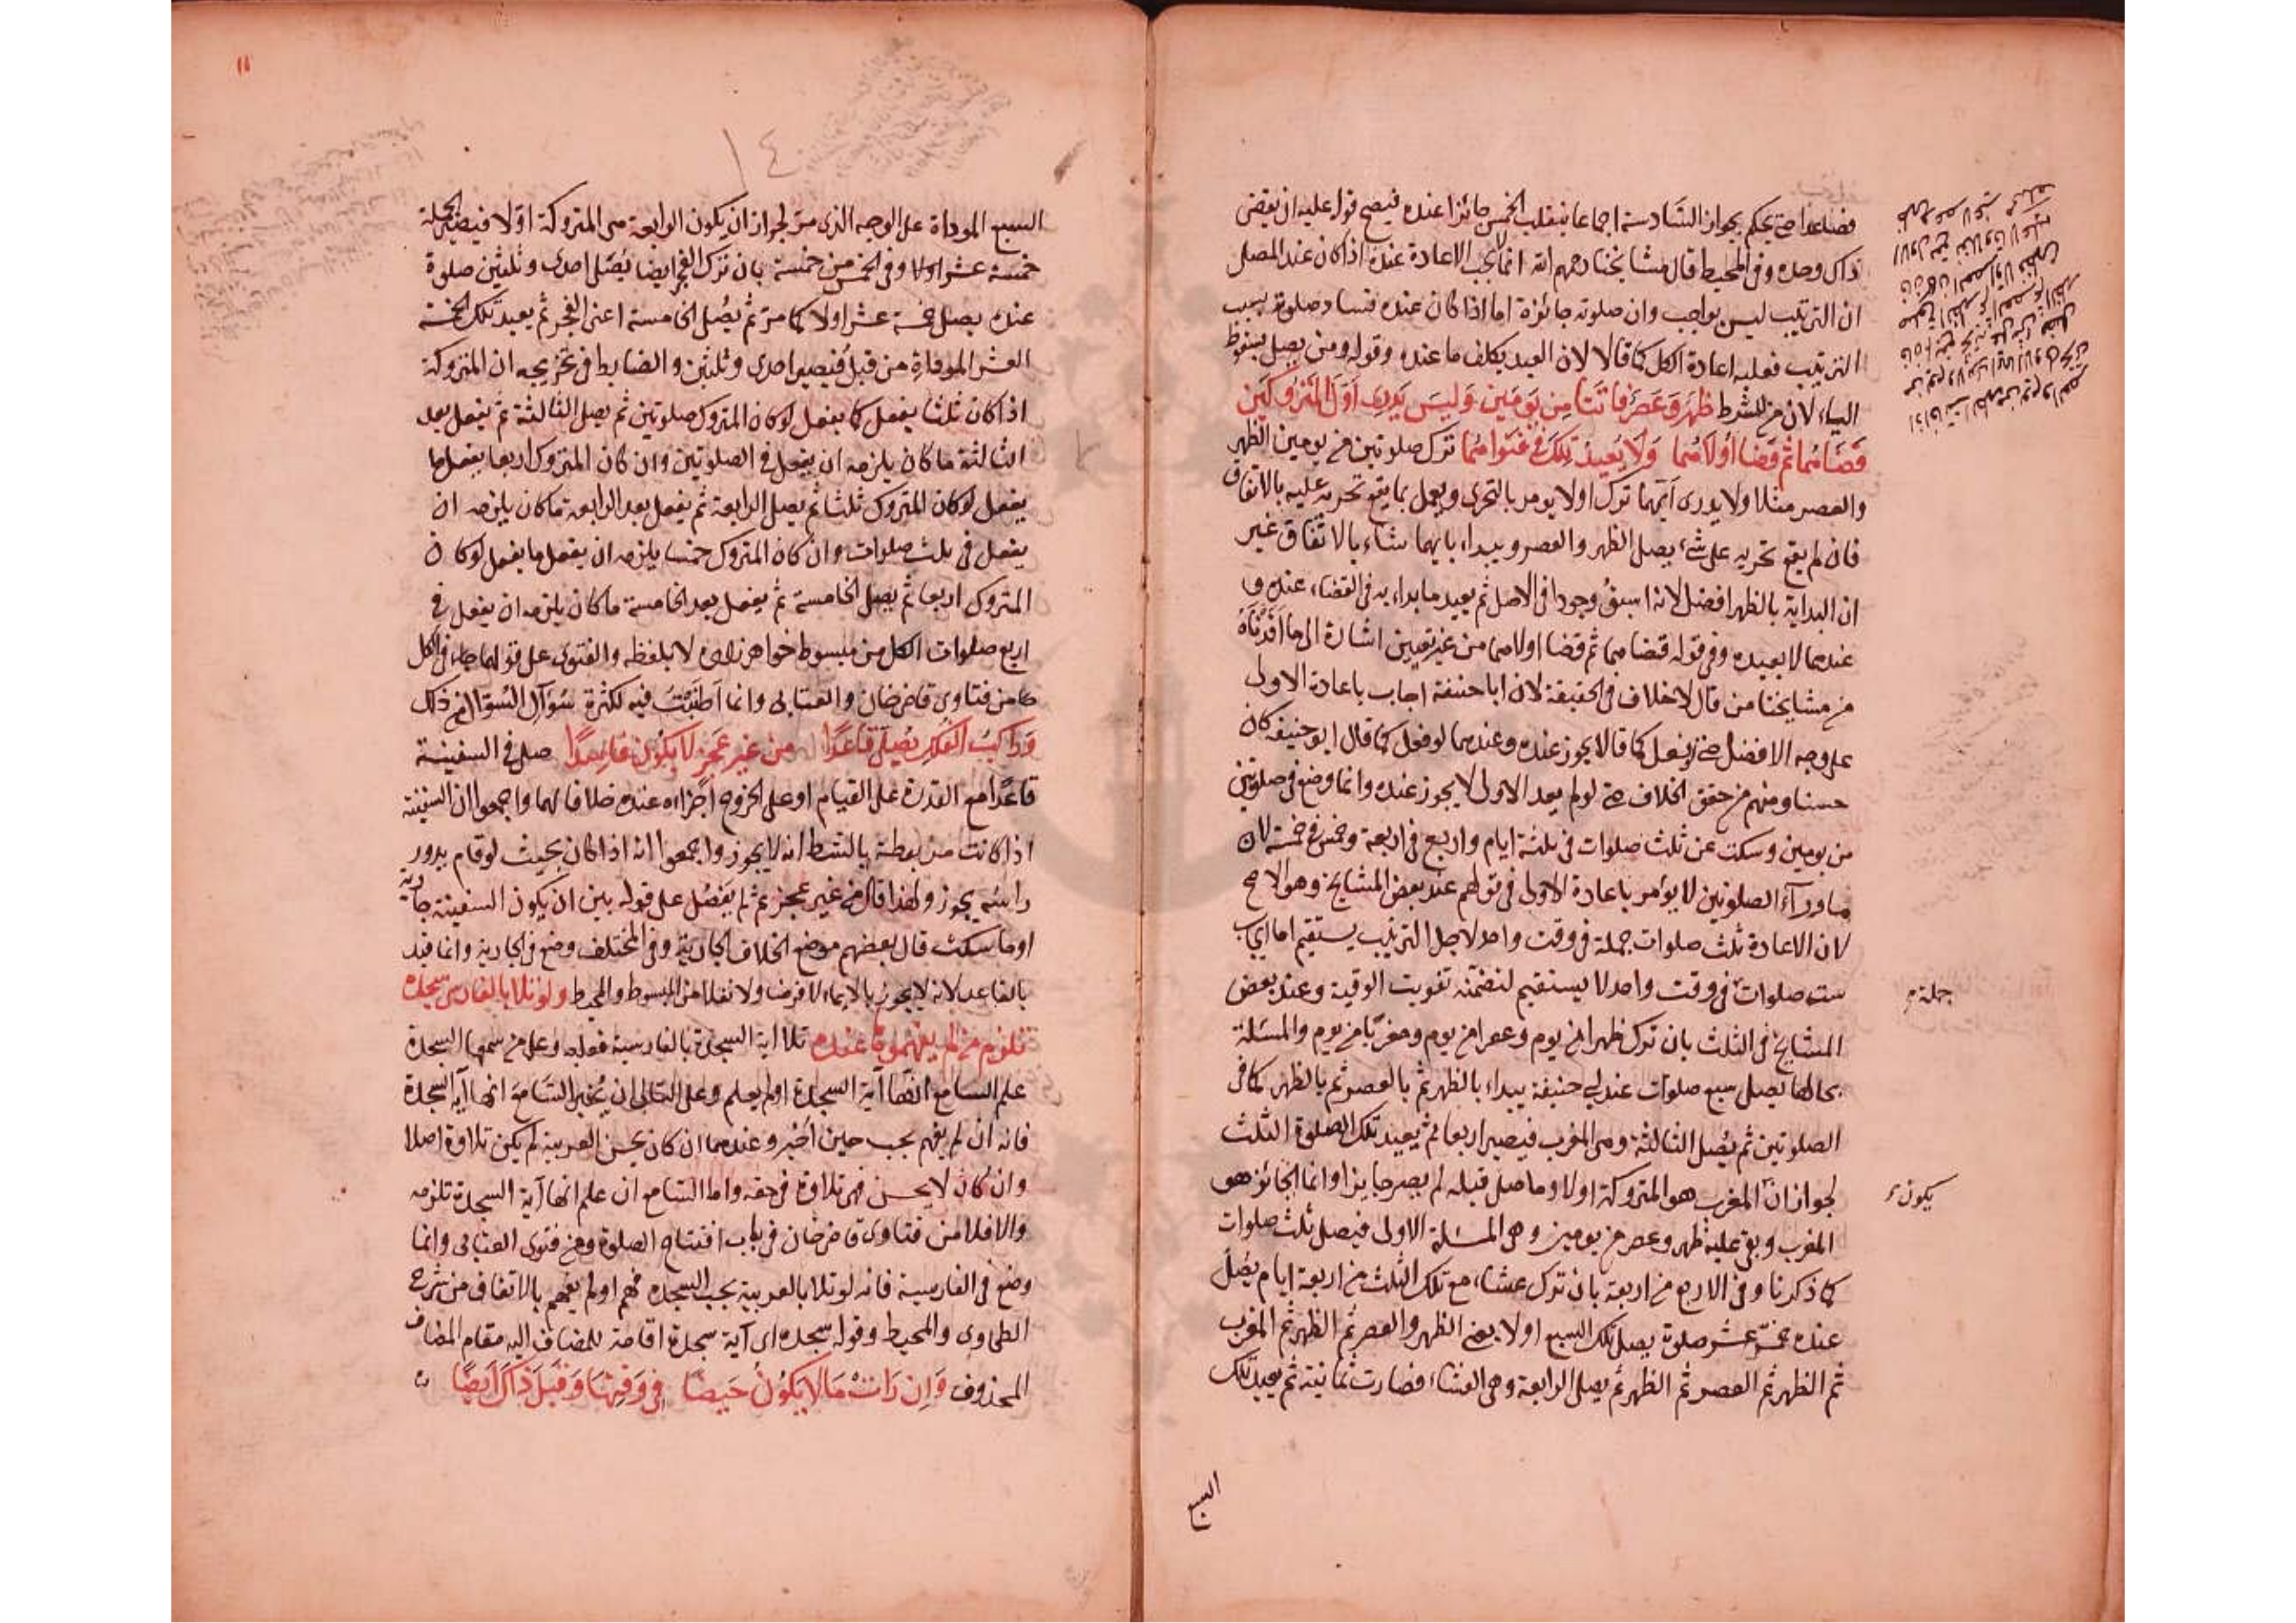 فصاعدا حتى يحكم بجواز السادسة اجماعا فينقلب الخمس جائزا عنده فيصح قوله عليه ان يقضي
ذاك وحده وفي المحيط قال مشايخنا رحمهم الله انما لا يجب الاعادة عنده اذا كان عند المصلي
ان الترتيب ليس بواجب وان صلوته جائزة اما اذا كان عنده فساد صلوته بسبب
الترتيب فعليه اعادة الكل كما قالا لان العبد يكلف ما عنده وقوله ومن يصل بسقوط
الياء لان من للشرط ظهر وعصر فاتتا من يومين وليس يدري اول المتروكتين
قضاهما ثم قضا اولاهما ولا يعيد تلك في فتواهما ترك صلوتين من يومين الظهر
والعصر مثلا ولا يدرى ايهما ترك اولا يومر بالتحري ويعمل بما يقع تحريه عليه بالاتفاق
فان لم يقع تحريه على شيء يصلي الظهر والعصر ويبداء بايهما شاء بالاتفاق غير
ان البداية بالظهر افضل لانه اسبق وجودا في الاصل ثم يعيد ما بداء به في القضاء عنده و
عندهما لا يعيده وفي قوله قضاهما ثم قضا اولاهما من غير تعيين اشارة الى ما
من مشايخنا من قال لا خلاف في الحقيقة لان ابا حنيفة اجاب باعادة الاولى
على وجه الافضل حتى لو فعل كما قالا يجوز عنده وعندهما لو فعل كما قال ابو حنيفة كان
حسنا ومنهم من حقق الخلاف حتى لو لم يعد الاولى لا يجوز عنده وانما وضع في صلوتين
من يومين وسكت عن ثلث صلوات في ثلثة ايام واربع في اربعة وخمس في خمسة لان
ما وراء الصلوتين لا يؤمر باعادة الاولى في قولهم عند بعض المشايخ وهو الاصح
لان الاعادة ثلث صلوات جملة في وقت واحد لاجل الترتيب يستقيم اما ايجاب
ست صلوات في وقت واحد لا يستقيم لتضمنه تفويت الوقتية وعند بعض
جملة
المشايخ في الثلث بان ترك ظهرا من يوم وعصرا من يوم ومغربا من يوم والمسئلة
بحالها يصلي سبع صلوات عند ابي حنيفة يبداء بالظهر ثم بالعصر ثم بالظهر كما في
الصلوتين ثم يصلي الثالثة وهي المغرب فيصير اربعا ثم يعيد تلك الصلوة الثلث
لجواز ان المغرب هو المتروكة اولا وما صلى قبله لم يصر جايزا وانما الجائز هو
يكون
المغرب وبقي عليه ظهر وعصر من يومين وهي المسئلة الاولى فيصلي ثلث صلوات
كما ذكرنا وفي الاربع من اربعة بان ترك عشاء مع تلك الثلث من اربعة ايام يصلي
عنده خمس عشر صلوة يصلي تلك السبع اولا يعني الظهر والعصر ثم الظهر ثم المغرب
ثم الظهر ثم العصر ثم الظهر ثم يصلي الرابعة وهي العشاء فصارت ثمانية ثم يعيد تلك
السبع
١١
١٤
السبع الموداة على الوجه الذي مر لجواز ان يكون الرابعة هي المتروكة اولا فيصير الجملة
خمسة عشر اولا وفي الخمس من خمسة بان ترك الفجر ايضا يصلي احدى وثلثين صلوة
عنده يصلي خمسة عشر اولا كما مر ثم يصلي الخامسة اعنى الفجر ثم يعيد تلك الخمسة
العشر الموفاة من قبل فيصير احدى وثلثين والضابط في تخريجه ان المتروكة
اذا كان ثلثا يفعل كما يفعل لو كان المتروك صلوتين ثم يصلي الثالثة ثم يفعل بعد
الثالثة ما كان يلزمه ان يفعل في الصلوتين وان كان المتروك اربعا يفعل ما
يفعل لو كان المتروك ثلثا ثم يصلي الرابعة ثم يفعل بعد الرابعة ما كان يلزمه ان
يفعل في ثلث صلوات وان كان المتروك خمسا يلزمه ان يفعل ما يفعل لو كان
المتروك اربعا ثم يصلي الخامسة ثم يفعل بعد الخامسة ما كان يلزمه ان يفعل في
اربع صلوات الكل من مبسوط خواهر زاده لا بلفظه والفتوى على قولهما في الكل
من فتاوى قاضي خان والعتابي وانما اطنبت فيه لكثرة سؤال السؤال من ذلك
وراكب الفلك يصلي قاعدا من غير عجز لا يكون فاسدا صلى في السفينة
قاعدا مع القدرة على القيام او على الخروج اجزاءه عنده خلافا لهما واجمعوا ان السفينة
اذا كانت مربوطة بالشط انه لا يجوز واجمعوا انه اذا كان بحيث لو قام يدور
راسه يجوز ولهذا قال من غير عجز ثم لم يفصل على قوله بين ان يكون السفينة جارية
او ما سكنت قال بعضهم موضع الخلاف الجارية وفي المختلف وضع في الجارية وانما قيد
بالقاعد لانه لا يجوز بالايماء لا فرضا ولا نفلا من المبسوط والمحيط ولو تلا بالفارسى سجده
تلزم من لم يفهموها عنده تلا اية السجدة بالفارسية فعليه وعلى من سمعها السجدة
علم السامع انها آية السجدة او لم يعلم وعلى التالى ان يخبر السامع انها آية السجدة
فانه ان لم يفهم يجب حين اخبر وعندهما ان كان يحسن العربية لم يكن تلاوة اصلا
وان كان لا يحسن فهي تلاوة في حقه واما السامع ان علم انها آية السجدة تلزمه
والا فلا من فتاوى قاضي خان في باب افتتاح الصلوة ومن فتوى العتابي وانما
وضع في الفارسية فانه لو تلا بالعربية يجب السجده فهم او لم يفهم بالاتفاق من شرح
الطحاوى والمحيط وقوله سجده اى آية سجدة اقامة للمضاف اليه مقام المضاف
المحذوف وان رات ما لا يكون حيضا في وقتها وقبل ذاك ايضا